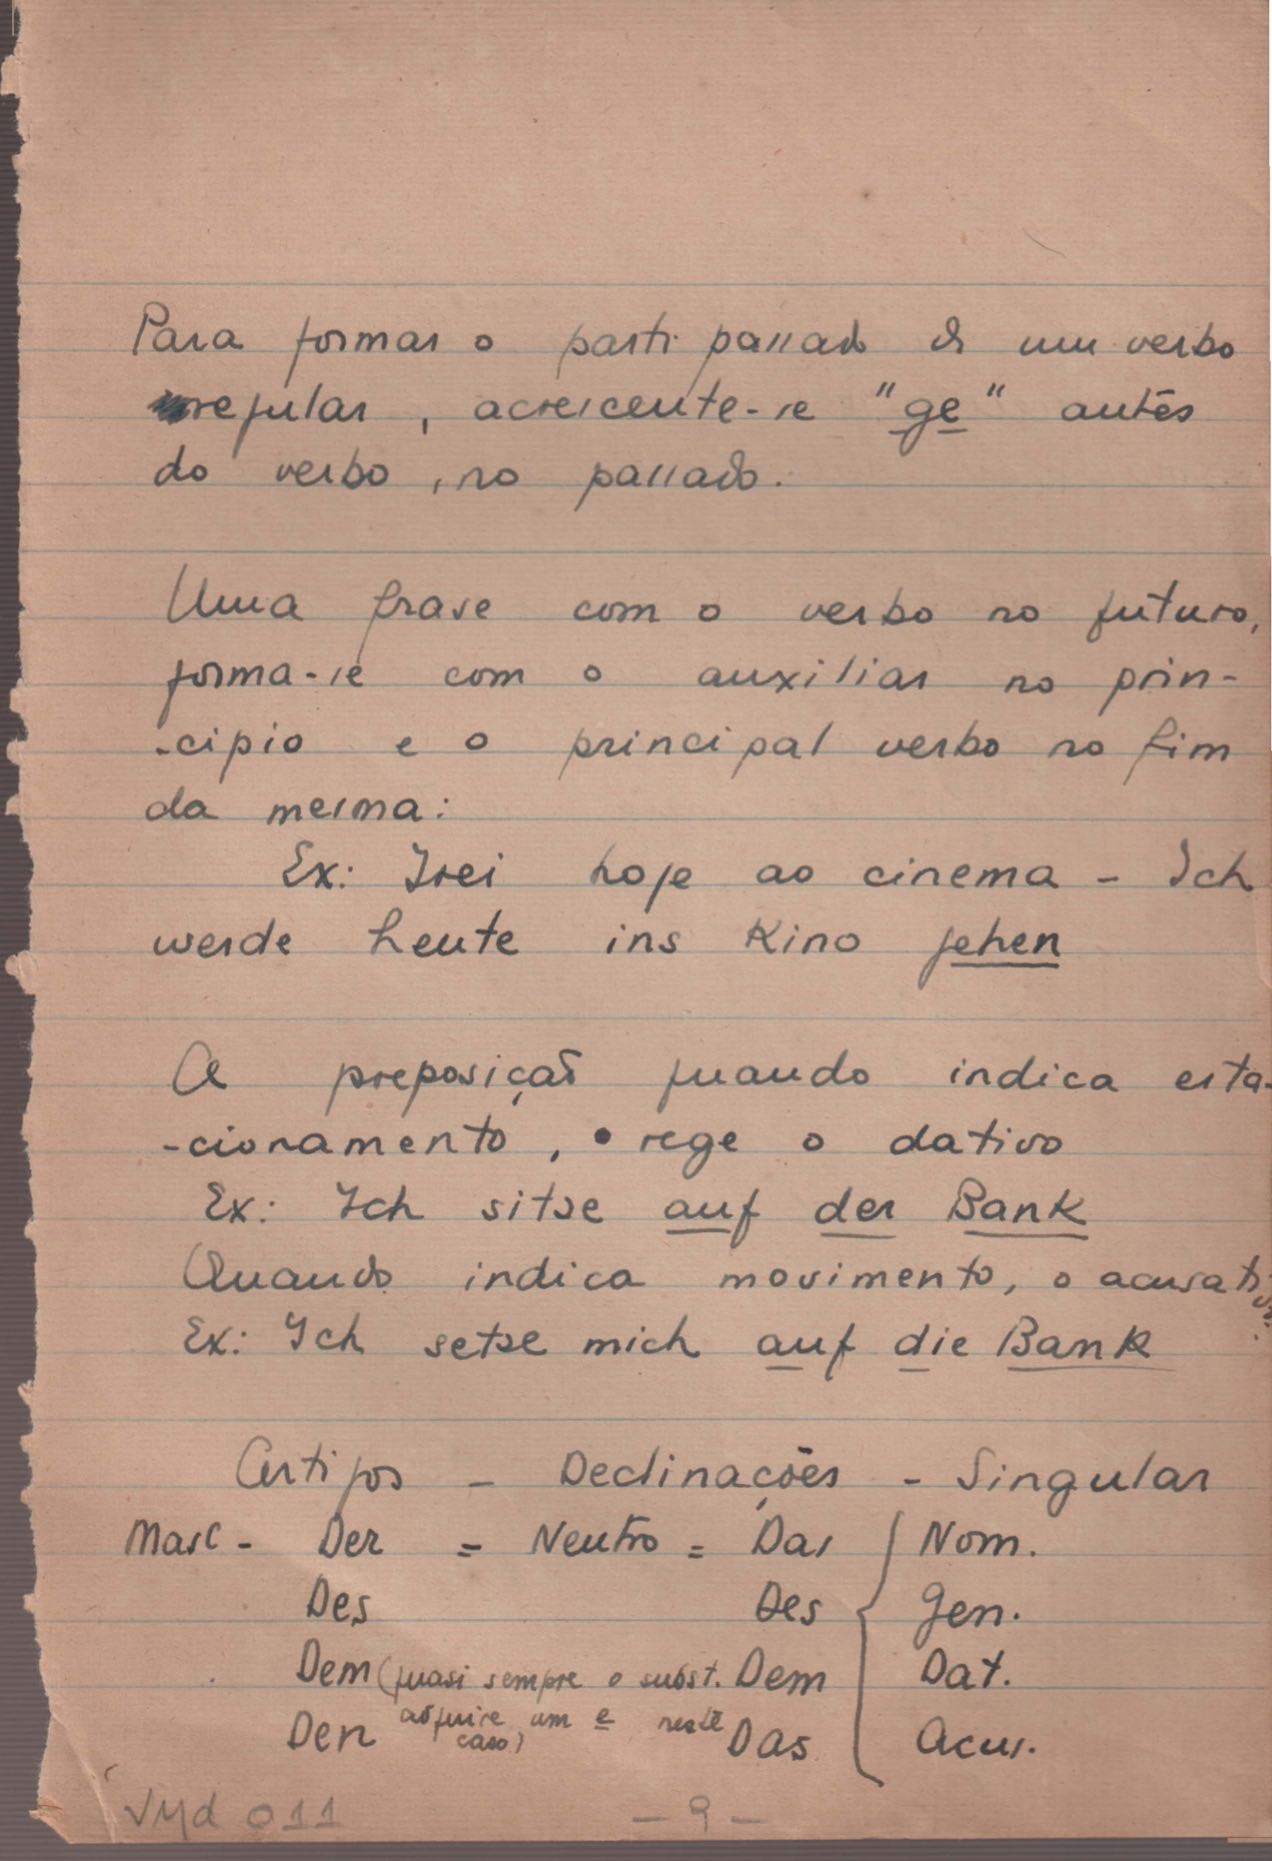 Para formar o parti passado de um verbo
regular, acrescente-se "ge" antes
do verbo, no passado.
Uma frase com o verbo no futuro,
forma-se com o auxiliar no prin-
-cipio e o principal verbo no fim
da mesma:
Ex: Irei hoje ao cinema - Ich
werde heute ins Kino gehen
A preposição quando indica esta-
-cionamento, rege o dativo
Ex: Ich sitze auf der Bank
Quando indica movimento, o acusativo.
Ex: Ich setze mich auf die Bank
Artigos - Declinações - Singular
Masc - Der = Neutro = Das { Nom.
Des Des Gen.
Dem (quasi sempre o subst. Dem Dat.
adquire um e neste
Den caso) Das Acus.
JMd 011 - 9 -